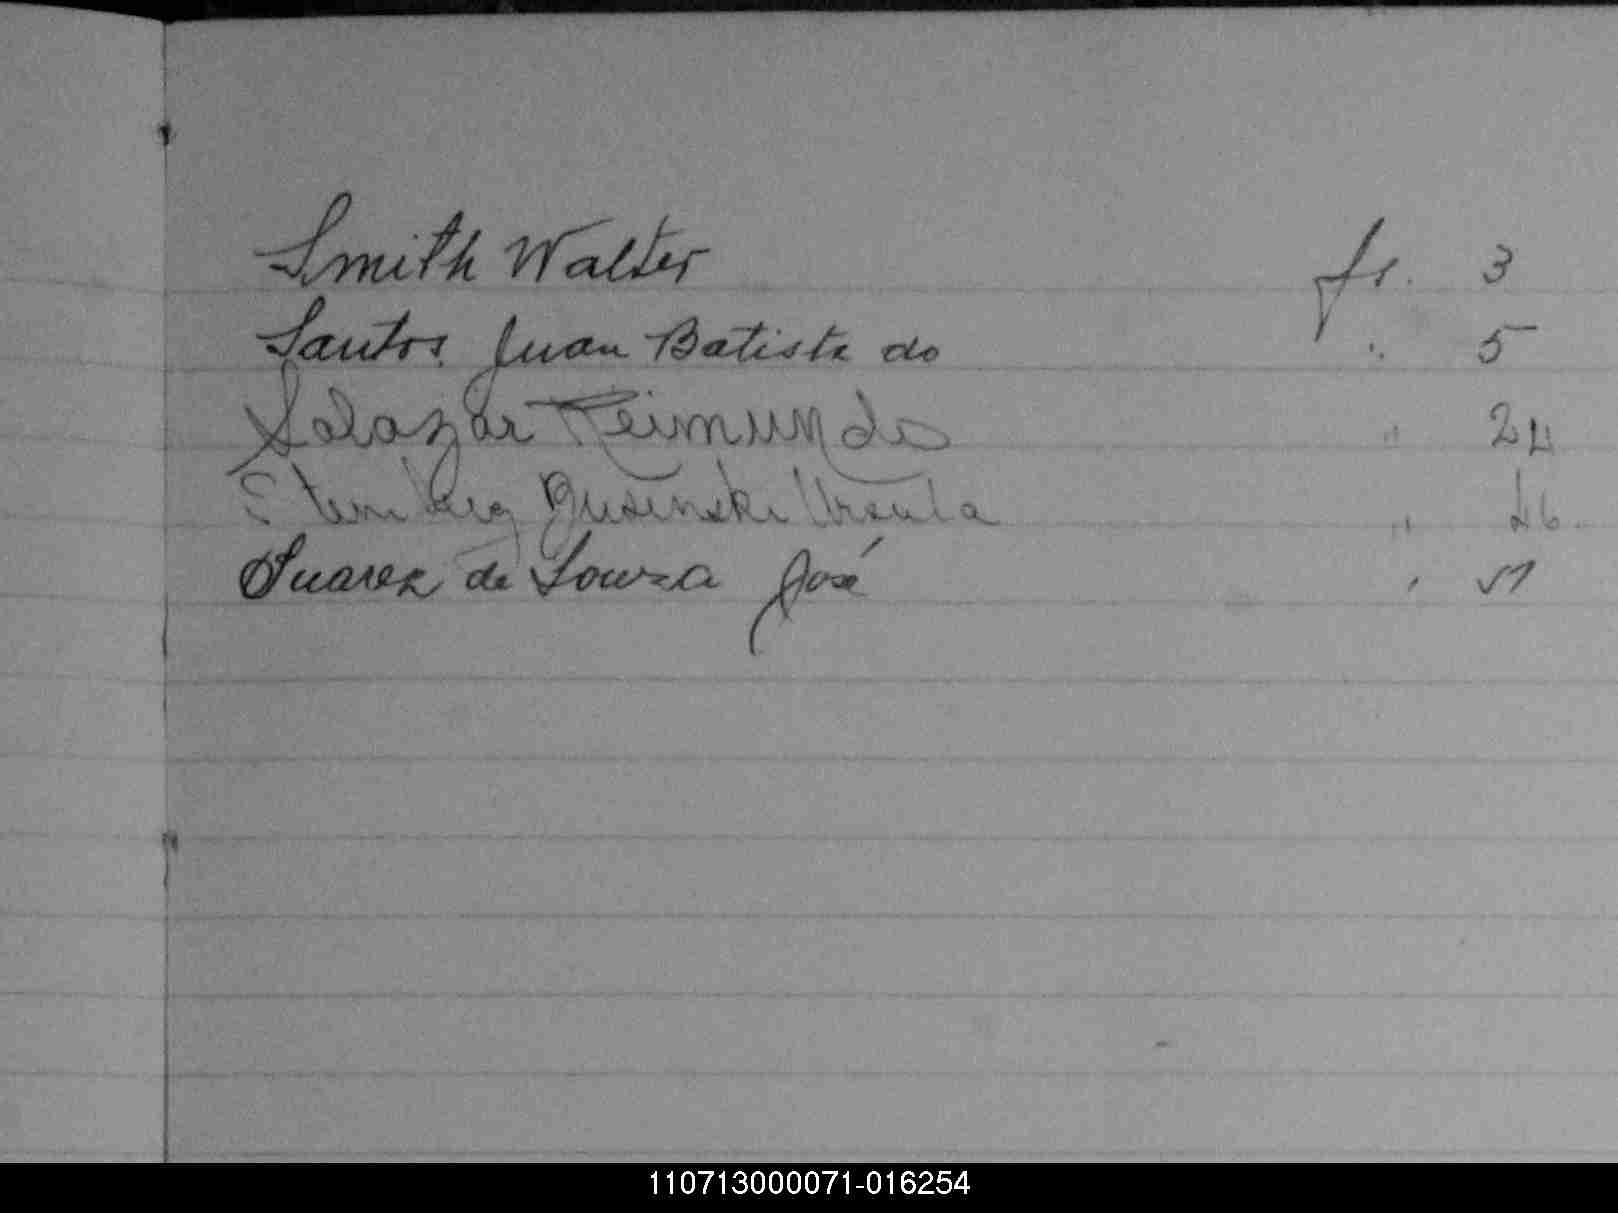 Smith Walter fs. 3
Santos Juan Batista do " 5
Salazar Reimundo " 24
Steinberg Ursula " 46.
Suarez de Souza José " 51
110713000071-016254